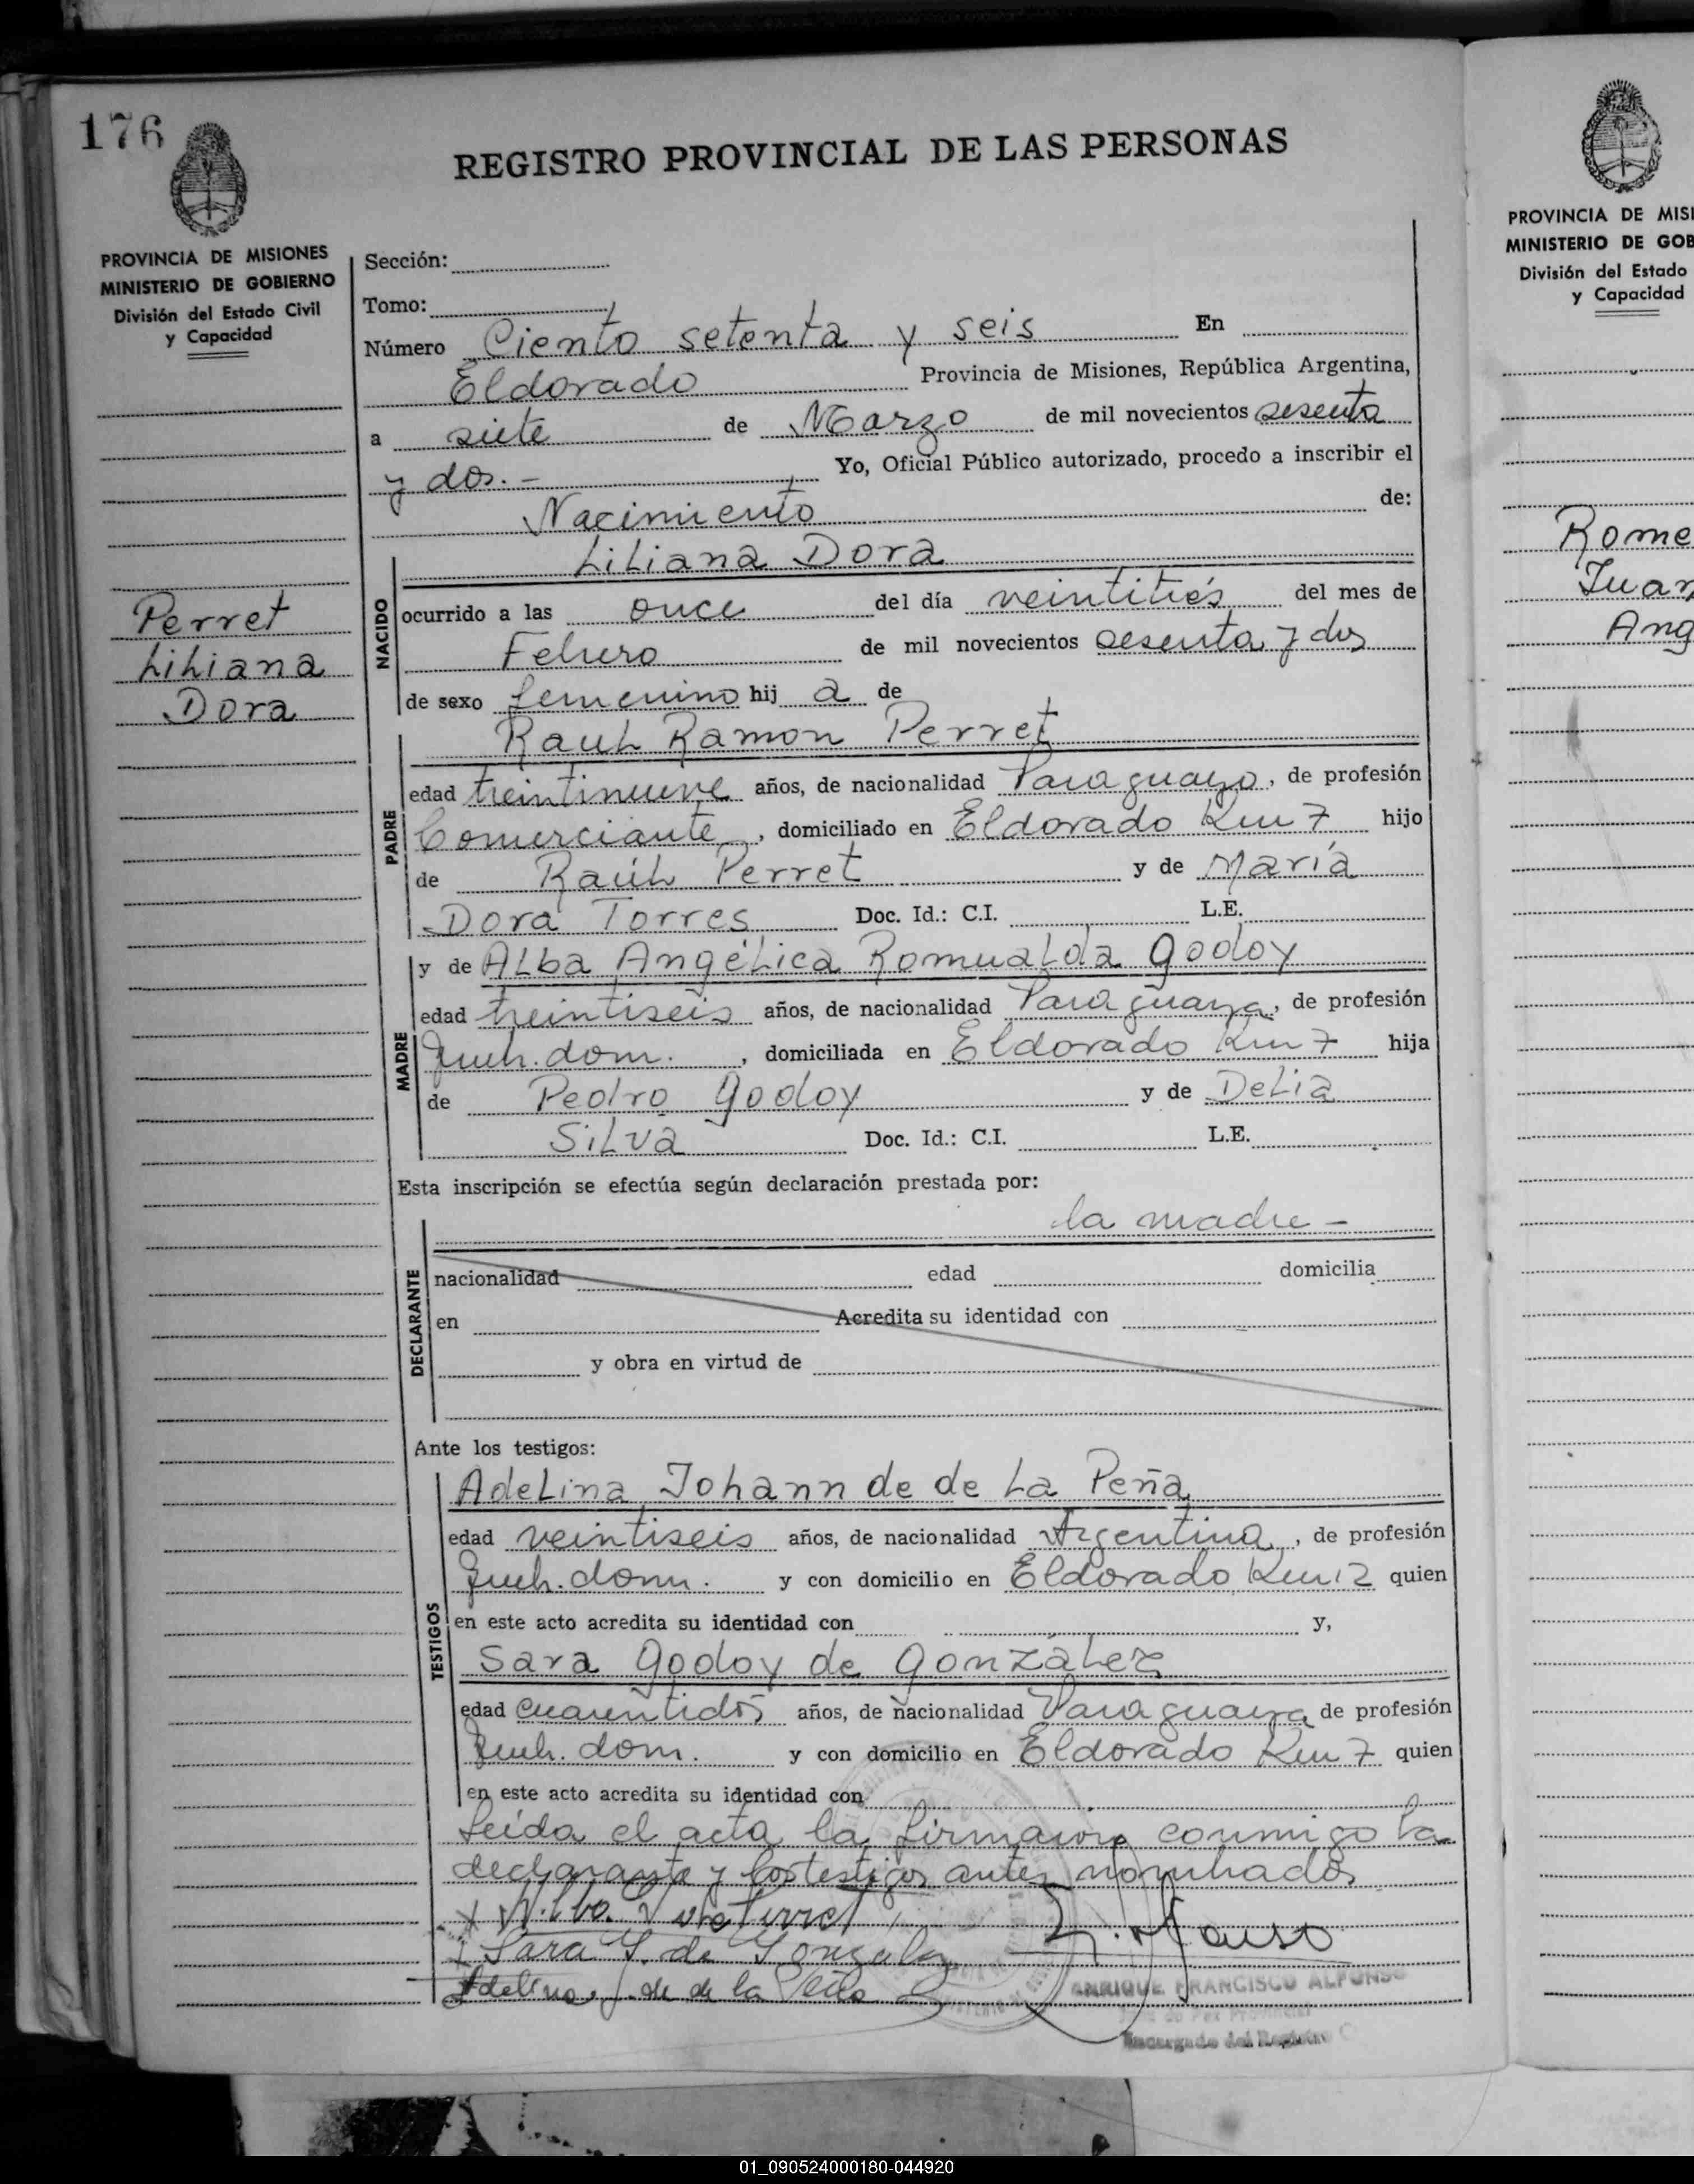 176
REGISTRO PROVINCIAL DE LAS PERSONAS
PROVINCIA DE MISIONES
MINISTERIO DE GOBIERNO
División del Estado Civil
y Capacidad
Perret
Liliana
Dora
Sección:
Tomo:
Número Ciento setenta y seis En
Eldorado Provincia de Misiones, República Argentina,
a siete de Marzo de mil novecientos sesenta
y dos.- Yo, Oficial Público autorizado, procedo a inscribir el
Nacimiento de:
Liliana Dora
NACIDO
ocurrido a las once del día veintitrés del mes de
Febrero de mil novecientos sesenta y dos
de sexo femenino hij a de
Raul Ramon Perret
PADRE
edad treintinueve años, de nacionalidad Paraguayo, de profesión
Comerciante, domiciliado en Eldorado Km 7 hijo
de Raúl Perret y de María
Dora Torres Doc. Id.: C.I. L.E.
y de Alba Angélica Romualda Godoy
MADRE
edad treintiseis años, de nacionalidad Paraguaya, de profesión
Queh. dom. , domiciliada en Eldorado Km 7 hija
de Pedro Godoy y de Delia
Silva Doc. Id.: C.I. L.E.
Esta inscripción se efectúa según declaración prestada por:
la madre -
DECLARANTE
nacionalidad edad domicilia
en Acredita su identidad con
y obra en virtud de
Ante los testigos:
Adelina Johann de de La Peña
TESTIGOS
edad veintiseis años, de nacionalidad Argentina, de profesión
Queh. dom. y con domicilio en Eldorado, Km 12 quien
en este acto acredita su identidad con y,
Sara Godoy de González
edad cuarentidós años, de nacionalidad Paraguaya de profesión
Queh. dom. y con domicilio en Eldorado Km 7 quien
en este acto acredita su identidad con
Leida el acta la firmaron conmigo la
declarante y los testigos antes nombrados
Sara G. de Gonzalez
Adelina J. de de la Peña
ENRIQUE FRANCISCO ALFONSO
Encargado del Registro C
PROVINCIA DE MISI
MINISTERIO DE GOB
División del Estado
y Capacidad
Rome
Juan
Ang
01_090524000180-044920